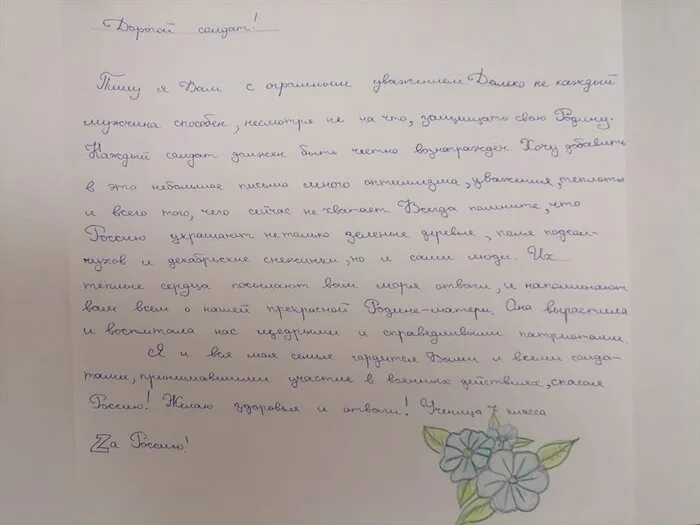 Дорогой солдат!
Пишу я Вам с огромным уважением Далеко не каждый
мужчина способен, несмотря не на что, защищать свою Родину.
Каждый солдат должен быть честно вознаграждён. Хочу добавить
в это небольшое письмо много оптимизма, уважения, теплоты
и всего того, чего сейчас не хватает. Всегда помните, что
Россию украшают не только зеленые деревья, поля подсол-
нухов и декабрьские снежинки, но и сами люди. Их
теплые сердца посылают вам моря отваги, и напоминают
вам всем о нашей прекрасной Родине-матери. Она вырастила
и воспитала нас щедрыми и справедливыми патриотами.
Я и вся моя семья гордится Вами и всеми солда-
тами, принимавшими участие в военных действиях, спасая
Россию! Желаю здоровья и отваги! Ученица 7 класса.
Zа Россию!